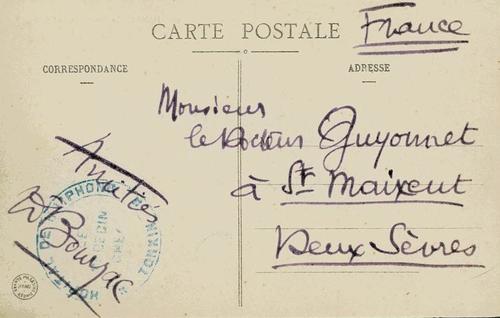 CARTE POSTALE
France
CORRESPONDANCE
ADRESSE
Monsieur
le Docteur Guyonnet
à St Maixent
Deux Sèvres
Amitiés
HOPITAL DE
TONKIN